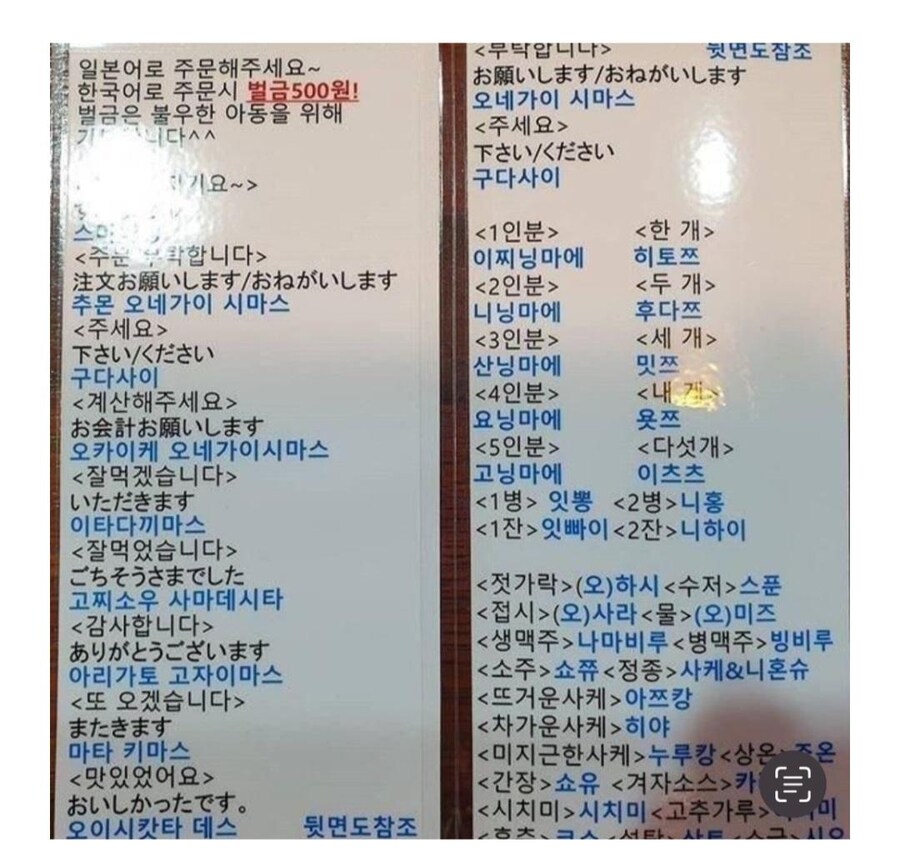 일본어로 주문해주세요~
한국어로 주문시 벌금500원!
벌금은 불우한 아동을 위해
<주문 부탁합니다>
注文お願いします/おねがいします
추몬 오네가이 시마스
<주세요>
下さい/ください
구다사이
<계산해주세요>
お会計お願いします
오카이케 오네가이시마스
<잘먹겠습니다>
いただきます
이타다끼마스
<잘먹었습니다>
ごちそうさまでした
고찌소우 사마데시타
<감사합니다>
ありがとうございます
아리가토 고자이마스
<또 오겠습니다>
またきます
마타 키마스
<맛있었어요>
おいしかったです。
오이시캇타 데스 뒷면도참조
<부탁합니다> 뒷면도참조
お願いします/おねがいします
오네가이 시마스
<주세요>
下さい/ください
구다사이
<1인분> <한 개>
이찌닝마에 히토쯔
<2인분> <두 개>
니닝마에 후다쯔
<3인분> <세 개>
산닝마에 밋쯔
<4인분> <내 게>
요닝마에 욧쯔
<5인분> <다섯개>
고닝마에 이츠츠
<1병> 잇뽕 <2병>니홍
<1잔>잇빠이<2잔>니하이
<젓가락>(오)하시 <수저>스푼
<접시>(오)사라 <물>(오)미즈
<생맥주>나마비루 <병맥주>빙비루
<소주>쇼쮸 <정종>사케&니혼슈
<뜨거운사케>아쯔캉
<차가운사케>히야
<미지근한사케>누루캉 <상온>죠온
<간장>쇼유 <겨자소스>
<시치미>시치미 <고추가루>